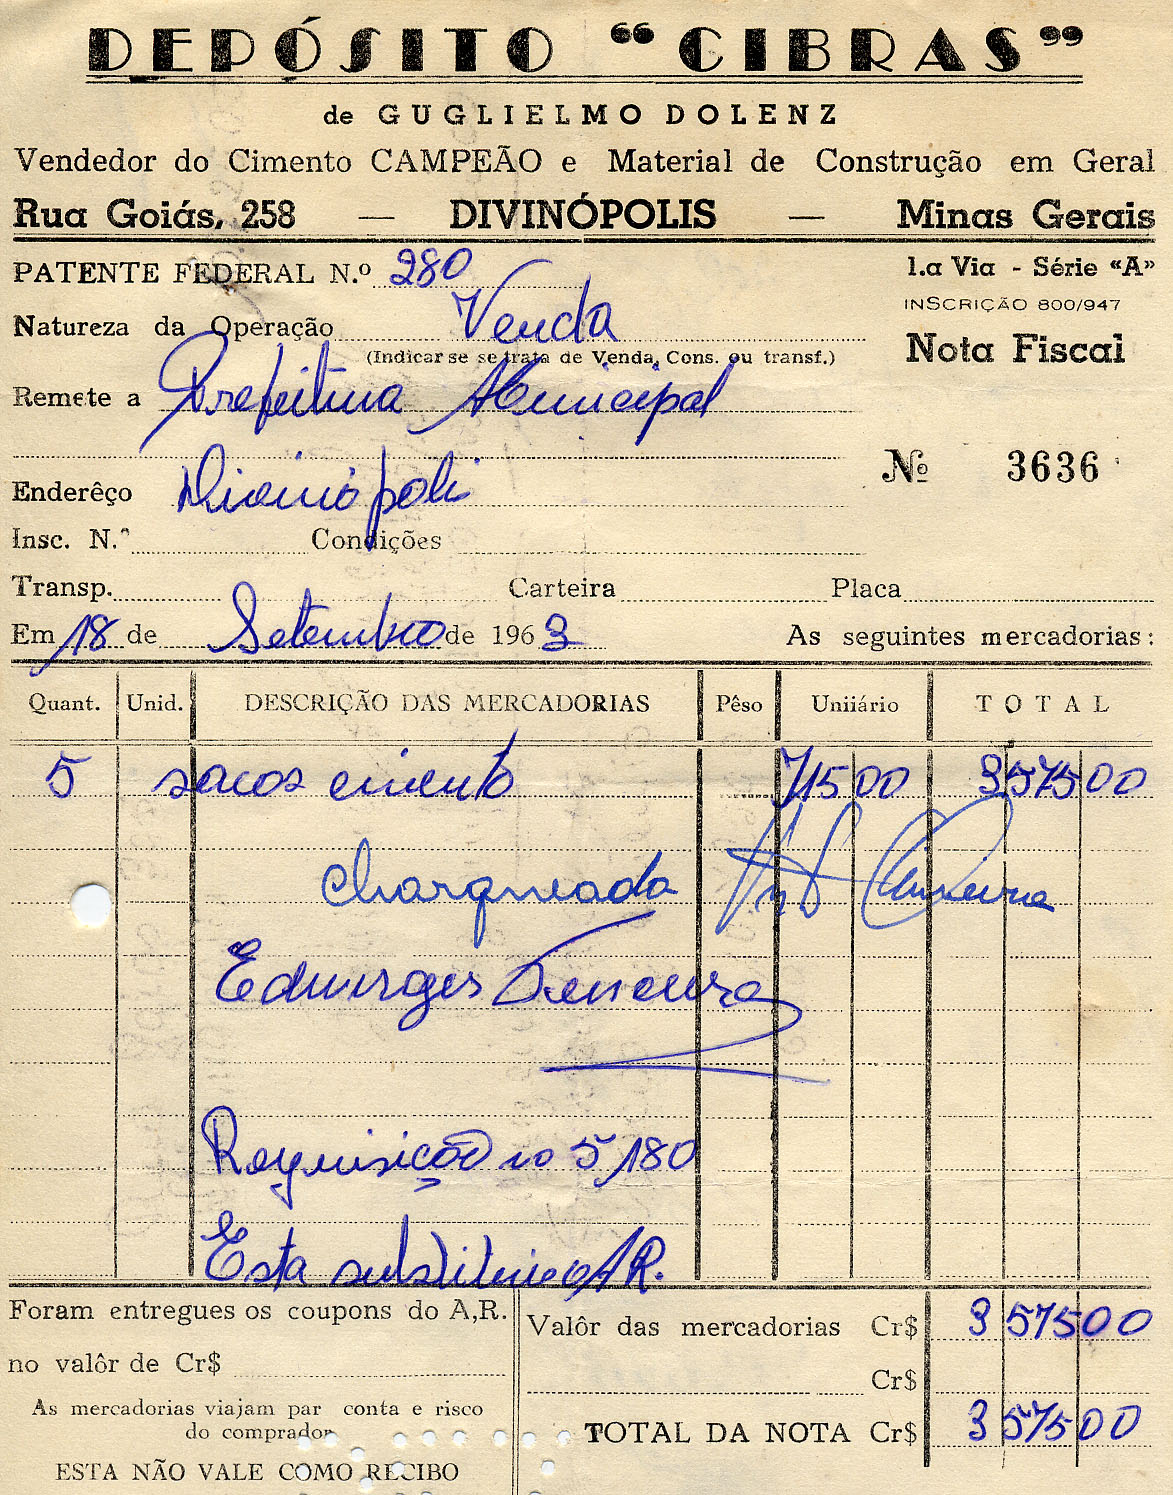 DEPÓSITO “CIBRAS”
de GUGLIELMO DOLENZ
Vendedor do Cimento CAMPEÃO e Material de Construção em Geral
Rua Goiás, 258 — DIVINÓPOLIS — Minas Gerais
PATENTE FEDERAL N.º 280
1.a Via - Série «A»
INSCRIÇÃO 800/947
Natureza da Operação Venda
(Indicar se se trata de Venda, Cons. ou transf.)
Nota Fiscal
Remete a Prefeitura Municipal
Nº 3636
Enderêço Divinópoli
Insc. N.º Condições
Transp. Carteira Placa
Em 18 de Setembro de 1963 As seguintes mercadorias:
Quant. Unid. DESCRIÇÃO DAS MERCADORIAS Pêso Uniiário TOTAL
5 sacos cimento 715 00 3 575 00
Charqueada
Requisição no 5180
Esta substitui o A R.
Foram entregues os coupons do A,R.
no valôr de Cr$
As mercadorias viajam par conta e risco
do comprador
ESTA NÃO VALE COMO RECIBO
Valôr das mercadorias Cr$ 3 575 00
Cr$
TOTAL DA NOTA Cr$ 3 575 00